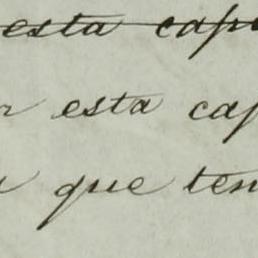 esta cap
esta cap
que ten